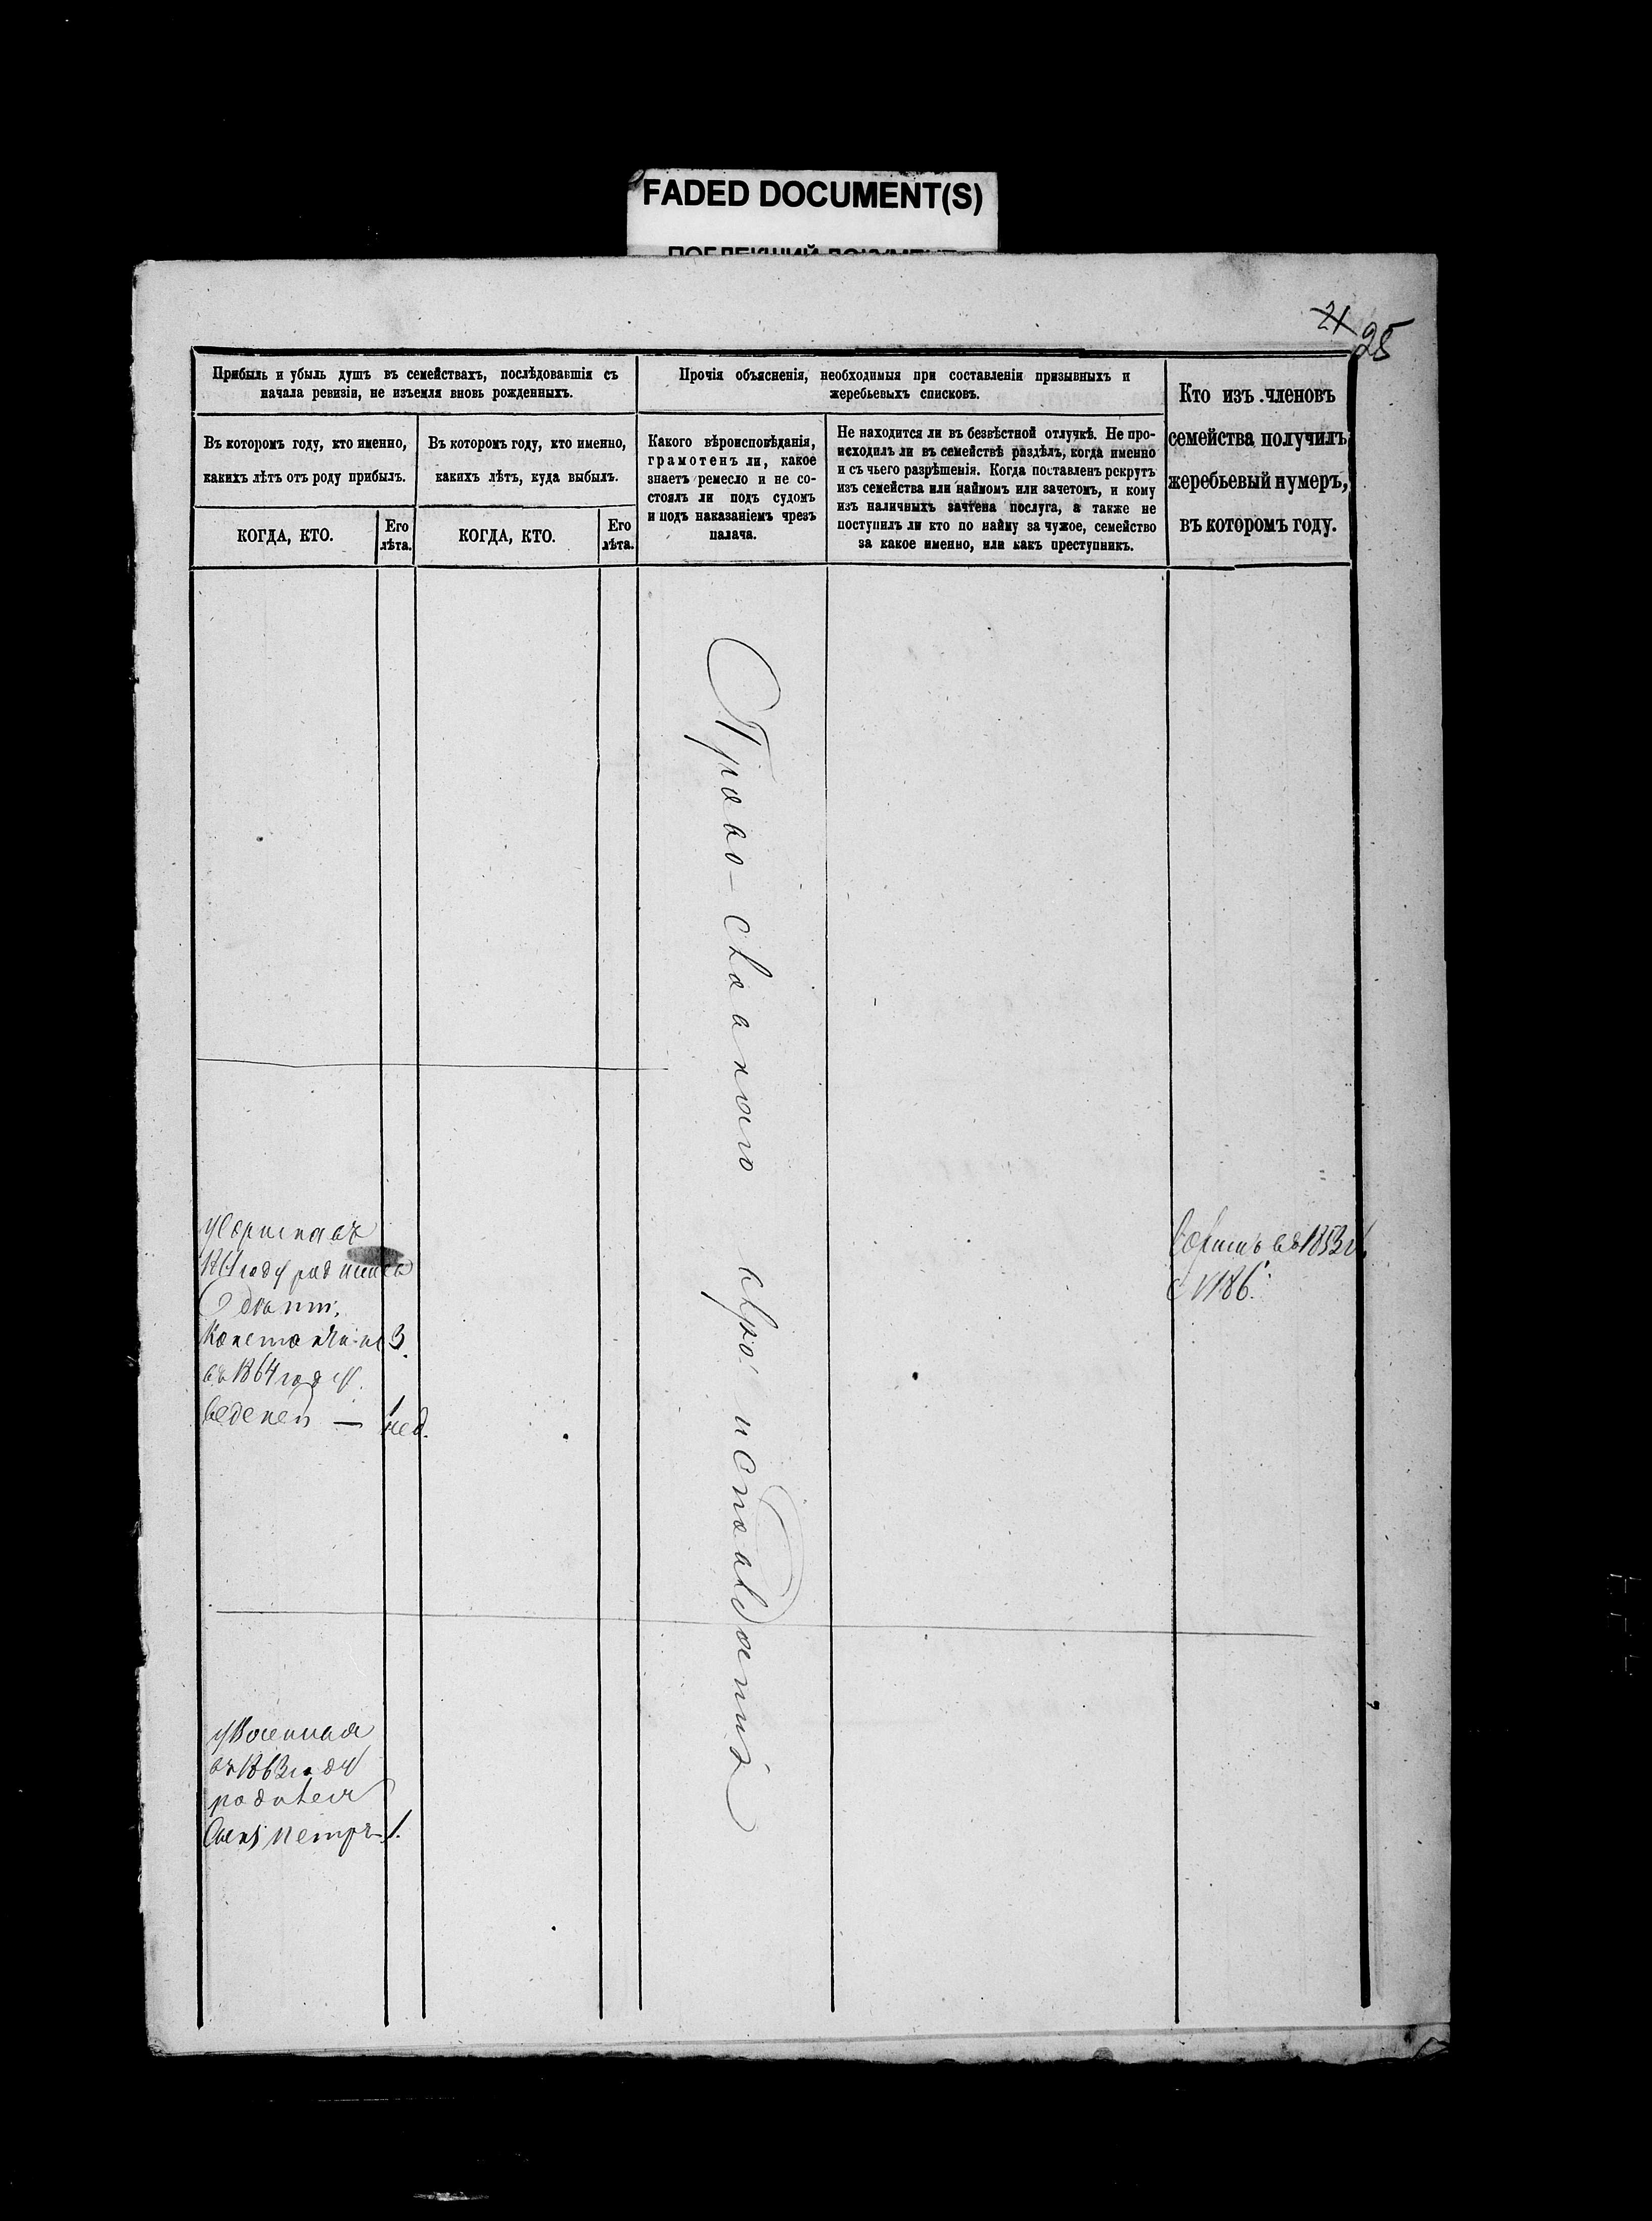 FADED DOCUMENT(S)
21 25
Прибыль и убыль душъ въ семействахъ, послѣдовавшія съ
начала ревизіи, не изъемля вновь рожденныхъ.
Въ которомъ году, кто именно,
какихъ лѣтъ отъ роду прибылъ.
КОГДА, КТО.
Его
лѣта.
Въ которомъ году, кто именно,
какихъ лѣтъ, куда выбылъ.
КОГДА, КТО.
Его
лѣта.
Прочія объясненія, необходимыя при составленіи призывныхъ и
жеребьевыхъ списковъ.
Какого вѣроисповѣданія,
грамотенъ ли, какое
знаетъ ремесло и не со-
стоялъ ли подъ судомъ
и подъ наказаніемъ чрезъ
палача.
Не находится ли въ безвѣстной отлучкѣ. Не про-
исходилъ ли въ семействѣ раздѣлъ, когда именно
и съ чьего разрѣшенія. Когда поставленъ рекрутъ
изъ семейства или наймомъ или зачетомъ, и кому
изъ наличныхъ зачтена послуга, а также не
поступилъ ли кто по найму за чужое, семейство
за какое именно, или какъ преступникъ.
Кто изъ членовъ
семейства получилъ
жеребьевый нумеръ,
въ которомъ году.
Право-славного вѣро исповѣданія
уБориса въ
1861 году родился
Константинъ 3.
въ 1864 году
веденей — 1 нед.
въ 1863 году
родился
Сынъ петръ 1.
Борисъ въ 1853 г.
№ 186.